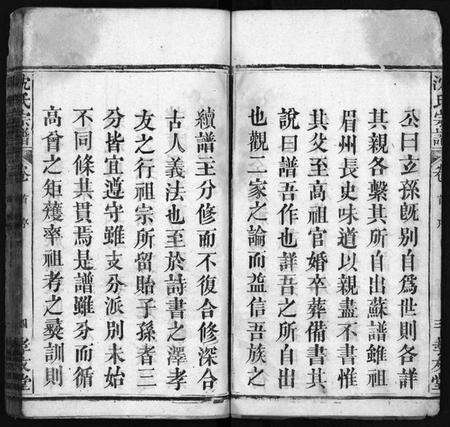 沈氏宗譜
卷
首
公曰玄孫旣别自爲世則各詳
其親各繫其所自出蘇譜雖祖
眉州長史味道以親盡不書惟
其父至高祖官婚卒葬備書其
說曰譜吾作也詳吾之所自出
也觀二家之論而益信吾族之
續譜主分修而不復合修深合
古人義法也至於詩書之澤孝
友之行祖宗所留貽子孫者三
分皆宜遵守雖支分派别未始
不同條其貫焉是譜雖分而循
高曾之矩矱率祖考之彝訓則
沈氏宗譜
卷
首